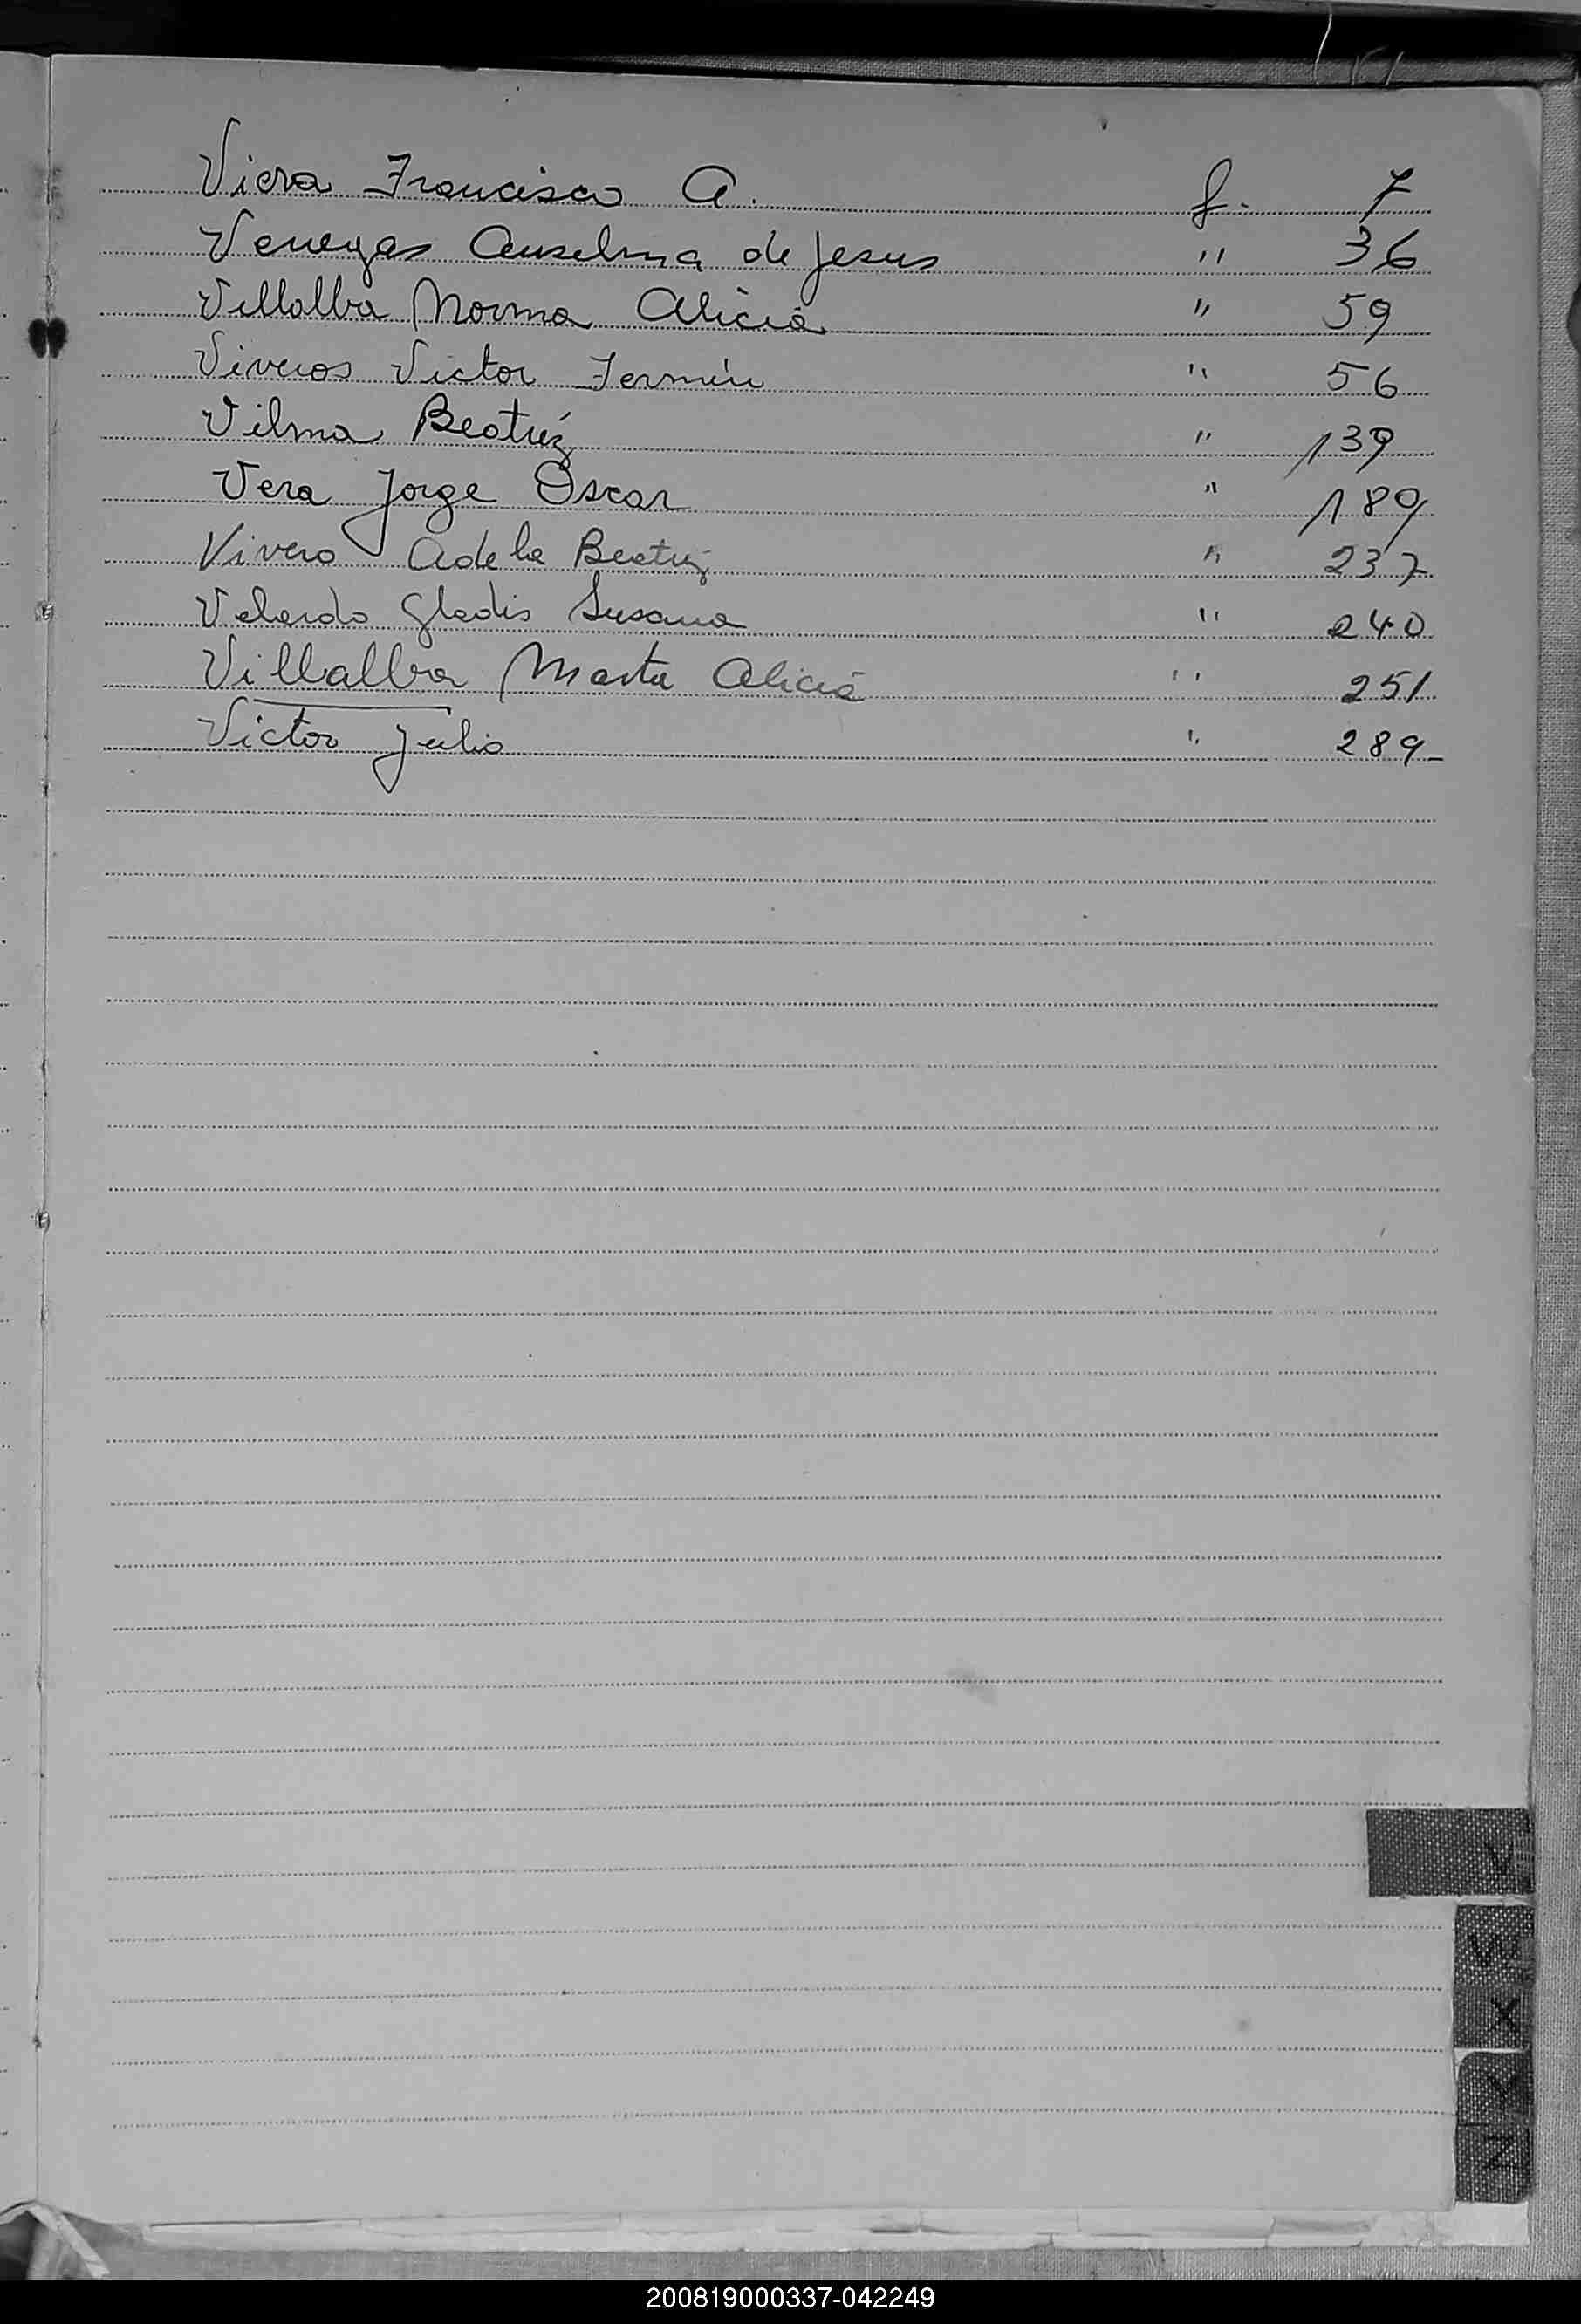 Viera Francisco A. f. 7
Venegas Anselma de Jesus " 36
Villalba Norma Alicia " 59
Viveros Victor Fermín " 56
Vilma Beatríz " 139
Vera Jorge Oscar " 189
Vivero Adela Beatriz " 237
Velardo Gladis Susana " 240
Villalba Marta Alicia " 251
Victor Julio " 289-
V
W
X
Y
Z
200819000337-042249